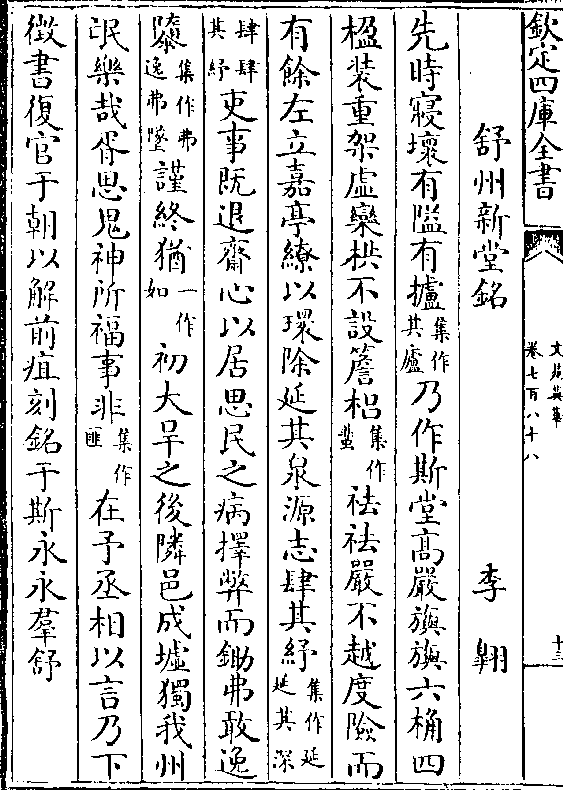 欽定四庫全書
文苑英華
卷七百八十八
十三
舒州新堂銘　李翺
先時寢壞有隘有攎集作其廬乃作斯堂高嚴旟旟六桷四
楹装重架虛欒栱不設簷梠集作蜚祛祛嚴不越度險而
有餘左立嘉亭繚以環除延其泉源志肆其紓集作延延其深
肆肆其紓吏事既退齋心以居思民之病擇弊而鋤弗敢逸
隳集作弗逸弗墮謹終猶一作如初大旱之後隣邑成墟獨我州
氓樂哉胥思鬼神所福事非集作匪在予丞相以言乃下
徴書復官于朝以解前疽刻銘于斯永永羣舒